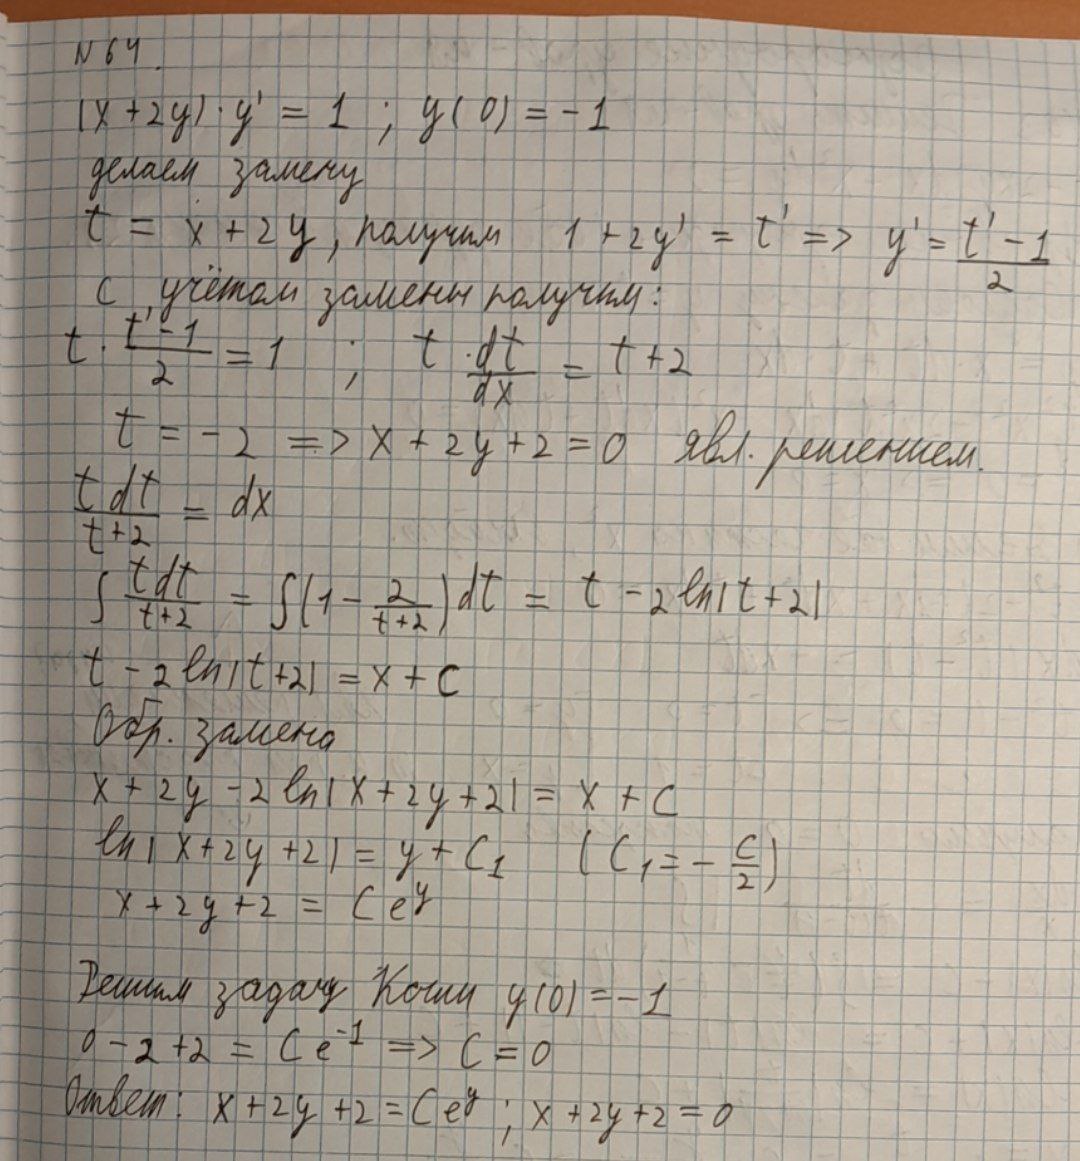 N 64.
(x+2y)·y' = 1 ; y(0) = -1
делаем замену
t = x + 2y, получим 1 + 2y' = t' => y' = \frac{t'-1}{2}
С учётом замены получим:
t · \frac{t'-1}{2} = 1 ; t · \frac{dt}{dx} = t + 2
t = -2 => x + 2y + 2 = 0 явл. решением.
\frac{t dt}{t+2} = dx
∫ \frac{t dt}{t+2} = ∫(1 - \frac{2}{t+2}) dt = t - 2 ln|t+2|
t - 2 ln|t+2| = x + C
Обр. замена
x + 2y - 2 ln|x + 2y + 2| = x + C
ln|x + 2y + 2| = y + C₁ (C₁ = - \frac{C}{2})
x + 2y + 2 = C e^y
Решим задачу Коши y(0) = -1
0 - 2 + 2 = C e^{-1} => C = 0
Ответ: x + 2y + 2 = C e^y ; x + 2y + 2 = 0